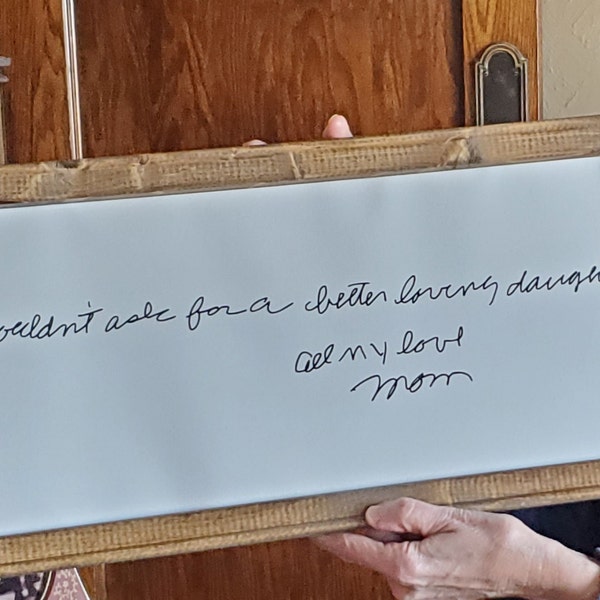 ouldn't ask for a better loving daugh
all my love
mom